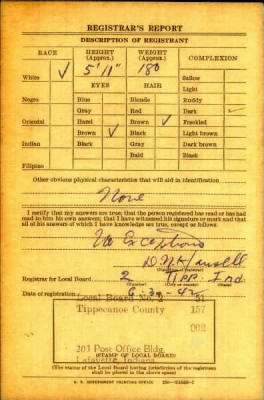 REGISTRAR'S REPORT
DESCRIPTION OF REGISTRANT
RACE HEIGHT (Approx.) WEIGHT (Approx.) COMPLEXION
White ✓ 5' 11" 180 Sallow
EYES HAIR Light
Negro Blue Blonde Ruddy
Gray Red Dark ✓
Oriental Hazel Brown ✓ Freckled
Brown ✓ Black Light brown
Indian Black Gray Dark brown
Bald Black
Filipino
Other obvious physical characteristics that will aid in identification
None
I certify that my answers are true; that the person registered has read or has had
read to him his own answers; that I have witnessed his signature or mark and that
all of his answers of which I have knowledge are true, except as follows:
No Exceptions
(Signature of registrar)
Registrar for Local Board 2 Tipp. Ind
Date of registration 6-30-42
Local Board No. 2 51
Tippecanoe County 157
002
203 Post Office Bldg.
Lafayette, Indiana
(STAMP OF LOCAL BOARD)
(The stamp of the Local Board having jurisdiction of the registrant
shall be placed in the above space)
U. S. GOVERNMENT PRINTING OFFICE